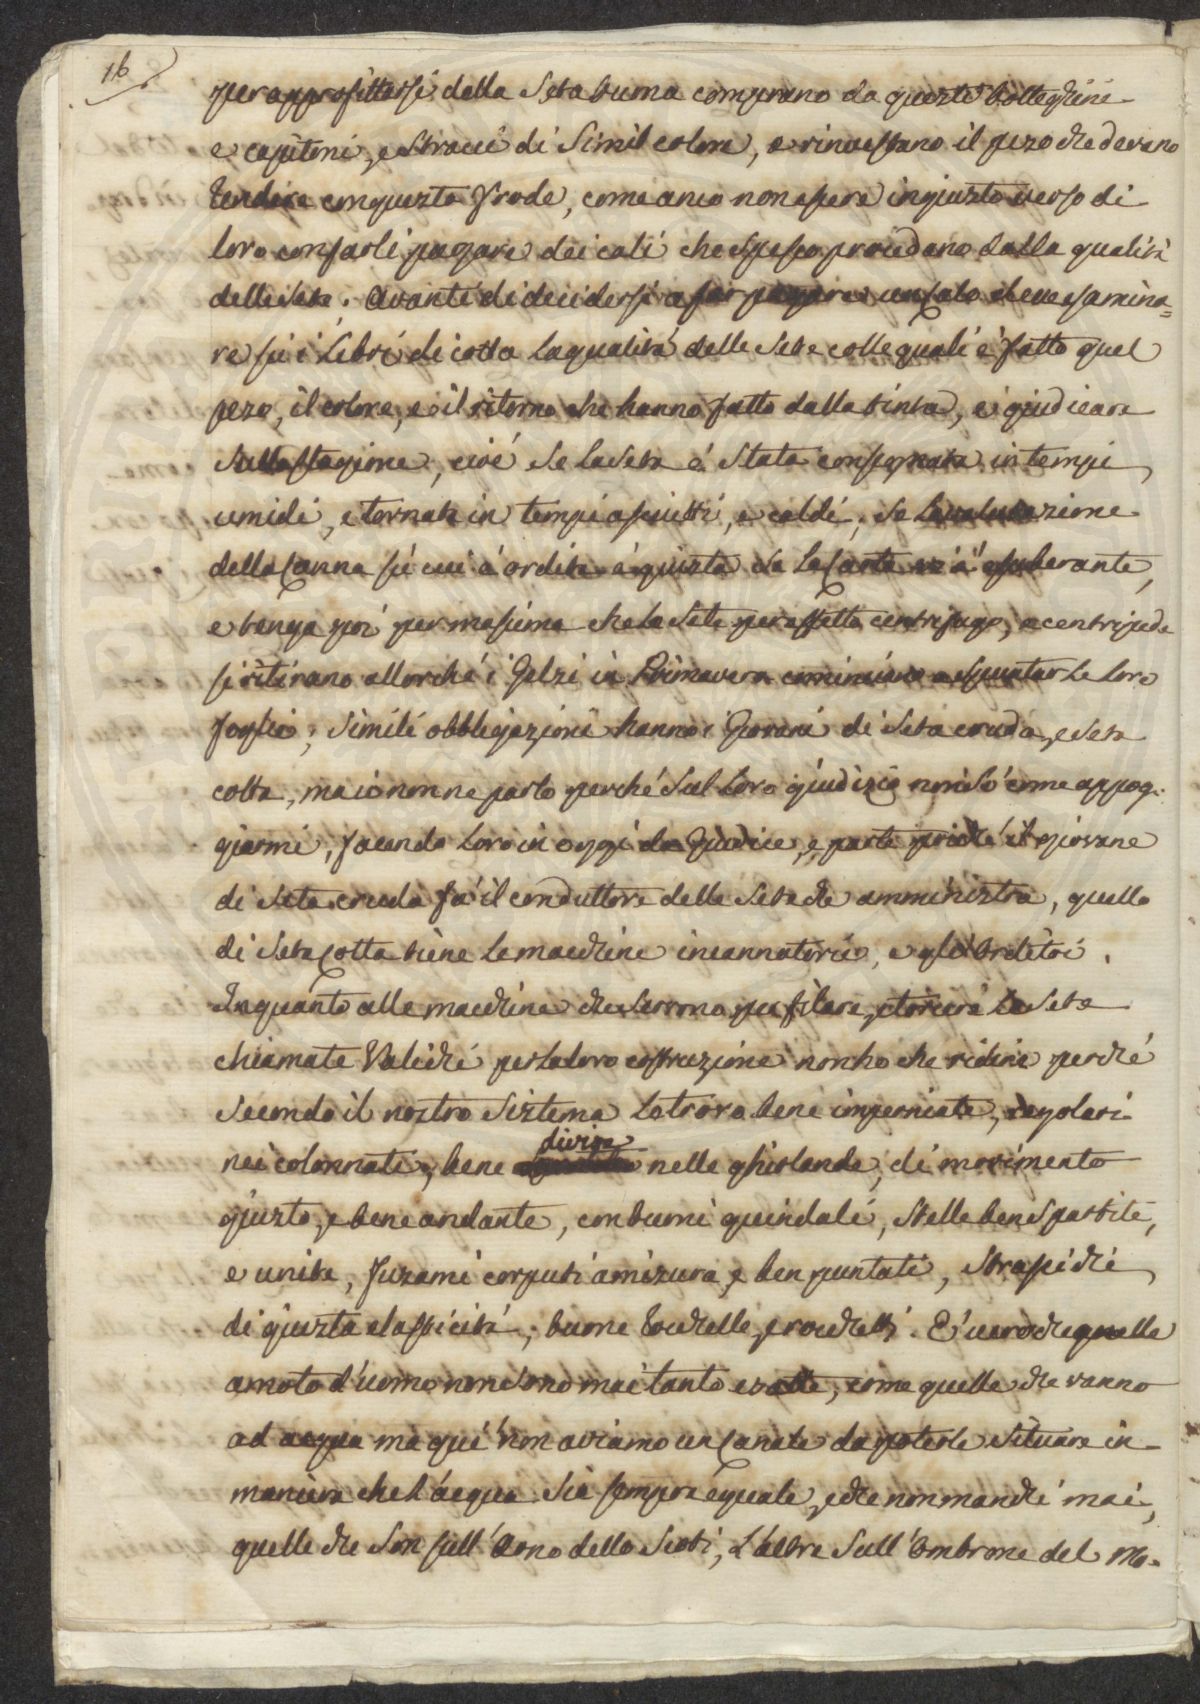 16
per approfittarsi della Seta buona comprano da queste bottegheine
e capitoni, e Stracci di Simil colore, e rinvestano il pezo che devano
rendere con questa frode, come anco non essere ingiusto verso di
loro con farli pagare dei cali che spesso procedano dalla qualità
delle Sete. Avanti di decidersi a far pagare un calo deve esamina=
re su i Libri di cotta la qualità delle Sete colle quali è fatto quel
pezo, il colore, e il ritorno che hanno fatto dalla tinta, e giudicare
sulla stagione, cioé se la Seta é stata consegnata in tempi
umidi, e tornata in tempi asciutti, e caldi, se la valutazione
della Canna su cui é ordita é giusta se la Carta é esuberante,
e tenga poi per massima che le Sete per effetto centrifugo, e centripede
si ritirano allorché i Gelzi in Primavera cominciano a spuntar le loro
foglie; Simili obbligazioni hanno i Giovani di Seta cruda, e Seta
cotta, ma io non ne parlo perché sul loro giudizio non só come appog-
giarmi, facendo loro in oggi da Giudice, e parte poiché il giovane
di Seta cruda fá il conduttore delle Sete che amministra, quello
di Seta Cotta tiene le macchine incannatorie, e gl'Orditoi.
In quanto alle macchine che servono per filare, e torcere la Seta
chiamate Valichi per la loro costruzione non ho che ridire perché
secondo il nostro Sistema le trovo bene imperniate, regolari
nei colonnati, bene divise nelle ghirlande, di movimento
giusto, e bene andante, con buoni guindali, Stelle ben spartite,
e unite, fuzami corputi a mizura, e ben puntati, Strasichi
di giusta elasticità, buone Cochelle, e rochetti. É vero che quelle
a moto d'uomo non sono mai tanto esatte, come quelle che vanno
ad acqua ma qui non aviamo un Canale da poterle situare in
maniera che l'acqua sia sempre eguale, e che non manchi mai,
quelle che son sull'Arno dello Scoti, l'altre sull'Ombrone del Mo-